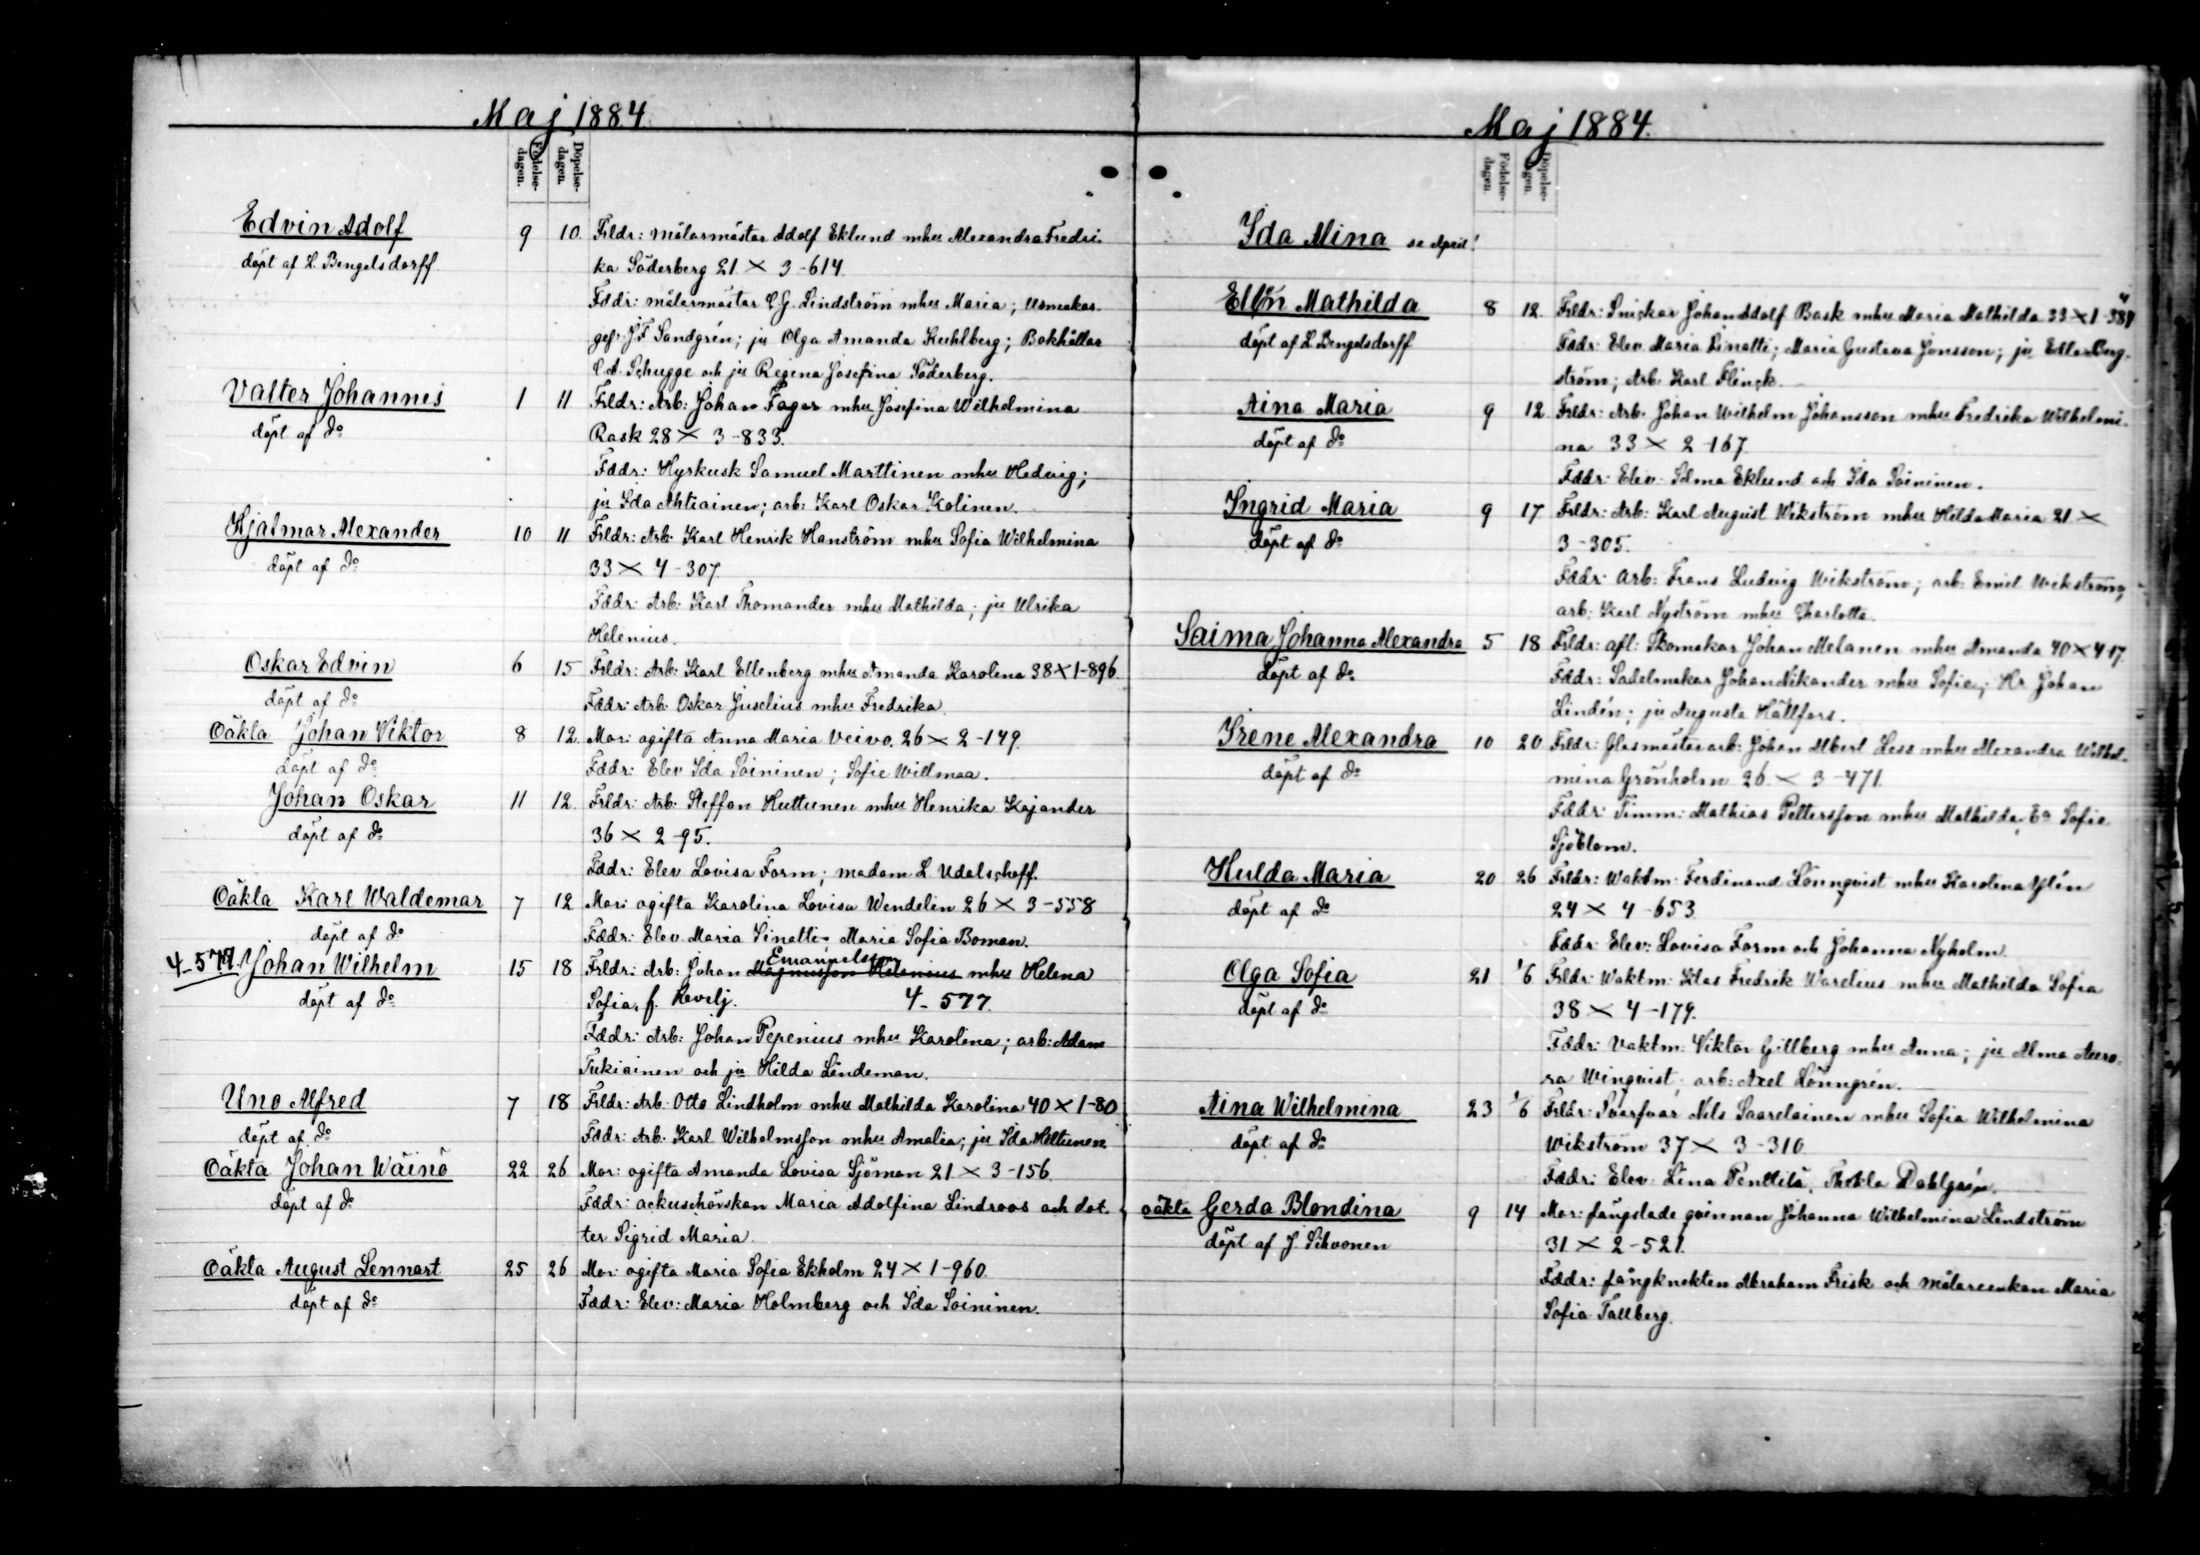 Maj 1884.
Födelse-dagen. Döpelse-dagen.
Edvin Adolf 9 10. Frldr: målarmästar Adolf Eklund mhu Alexandra Fredri-
döpt af L. Bengelsdorff. ka Söderberg 21 × 3-614.
Fddr: målarmästar C.G. Lindström mhu Maria; Urmakar-
gef: J F Sandgrén; ju Olga Amanda Kuhlberg; Bokhållar
C.A. Schugge och ju Regina Josefina Söderberg.
Valter Johannes 1 11 Frldr: Arb: Johan Fager mhu Josefina Wilhelmina
döpt af do Rask 28 × 3-833.
Fddr: Hyrkusk Samuel Marttinen mhu Hedvig;
ju Ida Ahtiainen; arb: Karl Oskar Kolinen.
Hjalmar Alexander 10 11 Frldr: Arb: Karl Henrik Hanström mhu Sofia Wilhelmina
döpt af do 33 × 4-307.
Fddr: Arb: Karl Thomander mhu Mathilda; ju Ulrika
Helenius.
Oskar Edvin 6 15 Frldr: Arb: Karl Ellenberg mhu Amanda Karolina 38 × 1-896.
döpt af do Fddr: Arb: Oskar Juselius mhu Fredrika.
Oäkta Johan Viktor 8 12. Mor: ogifta Anna Maria Veivo. 26 × 2-149.
döpt af do Fddr: Elev Ida Soininen; Sofie Willmaa.
Johan Oskar 11 12. Frldr: Arb: Steffan Huttunen mhu Henrika Kajander
döpt af do 36 × 2-95.
Fddr: Elev Lovisa Form; madam L. Udalschoff.
Oäkta Karl Waldemar 7 12 Mor: ogifta Karolina Lovisa Wendelin 26 × 3-558
döpt af do Fddr: Elev. Maria Linatti; Maria Sofia Boman.
Emanuelsson
4-577. Johan Wilhelm 15 18 Frldr: Arb: Johan Magnusson Helenius mhu Helena
döpt af do Sofia, f. Revilj. 4-577.
Fddr: Arb: Johan Pepenius mhu Karolina; arb: Adam
Tukiainen och ju Hilda Lindeman.
Uno Alfred 7 18 Frldr: Arb: Otto Lindholm mhu Mathilda Karolina 40 × 1-80
döpt af do Fddr: Arb: Karl Wilhelmsson mhu Amalia; ju Ida Hiltunen.
Oäkta Johan Wäinö 22 26 Mor: ogifta Amanda Lovisa Sjöman 21 × 3-156.
döpt af do Fddr: ackuschörskan Maria Adolfina Lindroos och dot-
ter Sigrid Maria.
Oäkta August Lennart 25 26 Mor: ogifta Maria Sofia Ekholm 24 × 1-960.
döpt af do Fddr: Elev: Maria Holmberg och Ida Soininen.
Maj 1884.
Födelse-dagen. Döpelse-dagen.
Ida Mina se April!
Ellen Mathilda 8 12. Frldr: Snickar Johan Adolf Bask mhu Maria Mathilda 33 × 1-384
döpt af L. Bengelsdorff Fddr: Elev Maria Linatti; Maria Gustava Jonsson; ju Ellen Berg-
ström; Arb: Karl Flinck.
Aina Maria 9 12. Frldr: Arb: Johan Wilhelm Johansson mhu Fredrika Wilhelmi-
döpt af do na 33 × 2-167.
Fddr: Elev: Selma Eklund och Ida Soininen.
Ingrid Maria 9 17 Frldr: Arb: Karl August Wikström mhu Hilda Maria 21 ×
döpt af do 3-305.
Fddr: Arb: Frans Ludvig Wikström; arb: Emil Wikström,
arb: Karl Nyström mhu Charlotta.
Saima Johanna Alexandra 5 18 Frldr: afl: Skomakar Johan Melanen mhu Amanda 40 × 4-17.
döpt af do Fddr: Sadelmakar Johan Nikander mhu Sofie; Hr. Johan
Lindén; ju Augusta Hällfors.
Irene Alexandra 10 20 Frldr: Glasmästeriarb: Johan Albert Less mhu Alexandra Wilhel-
döpt af do mina Grönholm 26 × 3-471.
Fddr: Timm: Mathias Pettersson mhu Mathilda; Ea Sofie
Sjöblom.
Hulda Maria 20 26 Frldr: Waktm: Ferdinand Lönnqvist mhu Karolina Ylén
döpt af do 24 × 4-653.
Fddr: Elev: Lovisa Form och Johanna Nyholm.
Olga Sofia 21 1/6 Frldr: Waktm: Klas Fredrik Warelius mhu Mathilda Sofia
döpt af do 38 × 4-179.
Fddr: Vaktm: Viktor Gillberg mhu Anna; ju Alma Auro-
ra Winqvist; arb: Axel Lönngrén.
Aina Wilhelmina 23 1/6 Frldr: Svarfvar Nils Saarelainen mhu Sofia Wilhelmina
döpt af do Wikström 37 × 3-310.
Fddr: Elev: Lina Penttilä, Thekla Dahlgrén.
oäkta Gerda Blondina 9 14 Mor: fängslade qvinnan Johanna Wilhelmina Lindström
döpt af J. Sihvonen 31 × 2-521.
Fddr: fångknekten Abraham Frisk och målareenkan Maria
Sofia Tallberg.